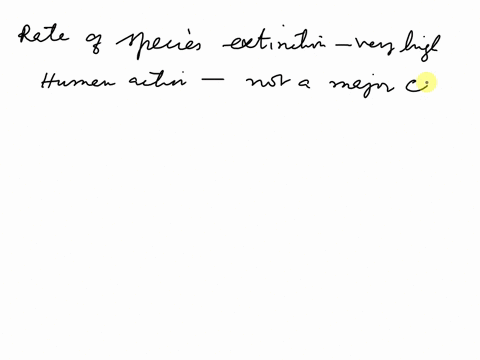 Rate of species extinction – very high
Human action – not a major c